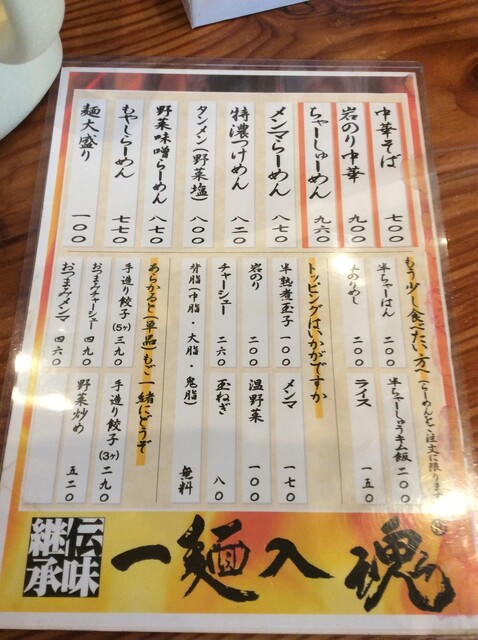 中華そば 七〇〇
岩のり中華 九〇〇
ちゃーしゅーめん 九六〇
メンマらーめん 八七〇
特濃つけめん 八二〇
タンメン(野菜塩) 八〇〇
野菜味噌らーめん 八七〇
もやしらーめん 七七〇
麺大盛り 一〇〇
もう少し食べたい方へ(らーめんとご注文に限ります)
半ちゃーはん 二〇〇
半ちゃーしゅうキム飯 二〇〇
のりめし 二〇〇
ライス 一五〇
トッピングはいかがですか
半熟煮玉子 一〇〇
メンマ 一七〇
岩のり 二〇〇
温野菜 一〇〇
チャーシュー 二六〇
玉ねぎ 八〇
背脂(中脂・大脂・鬼脂) 無料
あらかると(単品)もご一緒にどうぞ
手造り餃子(5ヶ) 三九〇
手造り餃子(3ヶ) 二九〇
おつまみチャーシュー 四九〇
野菜炒め 五二〇
おつまみメンマ 四六〇
伝味継承
一麺入魂